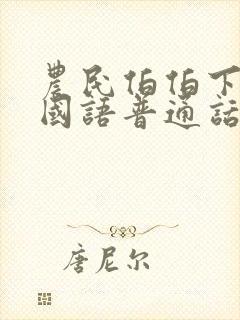 農民伯伯下
國語普通話
唐尼尔